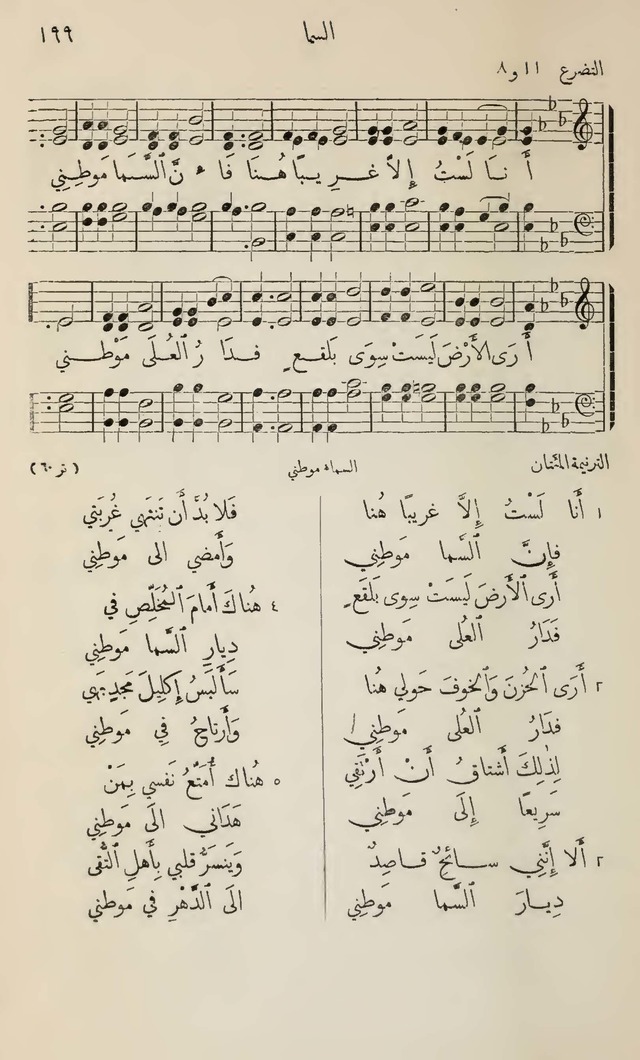 السما ١٩٩
التضرع ١١ و ٨
أَ نَا لَسْتُ إِلاَّ غَرِيبًا هُنَا فَإِنَّ ٱلسَّمَا مَوْطِنِي
أَرَى الأَرْضَ لَيسَتْ سِوَى بَلقَعٍ فَدَارُ ٱلعُلَى مَوْطِنِي
الترنيمة المئتان السماء موطني (تر ٦٠)
١ أَنا لَسْتُ إِلَّا غريبًا هُنا
فَإِنَّ ٱلسَّما مَوطِنِي
أَرَى ٱلأَرضَ لَيسَتْ سِوى بَلقَعٍ
فَدَارُ ٱلعُلى مَوطِنِي
٢ أَرَى ٱلحُزنَ وَٱلخوفَ حَولِي هُنا
فدَارُ ٱلعُلى مَوطِنِي
لِذٰلِكَ أَشتاقُ أَنْ أَرْتَقِي
سَرِيعًا إِلَى مَوطِنِي
٢ أَلا إِنَّنِي سائحٌ قاصِدٌ
دِيارَ ٱلسَّما مَوطِنِي
فَلا بُدَّ أَن تَنتَهي غُربَتي
وَأَمضي الى مَوطِني
٤ هُناكَ أَمامَ ٱلمُخَلِّصِ في
دِيارِ ٱلسَّما مَوطِني
سَأَلبَسُ إِكلِيلَ مَجدٍ بَهي
وَأَرتاحُ في مَوطِني
٥ هُناكَ أُمَتِّعُ نَفسي بِمَنْ
هَدَاني الَى مَوطِني
وَيَنسَرُّ قلبي بِأَهلِ ٱلتُّقى
الَى ٱلدَّهْرِ في مَوطِني